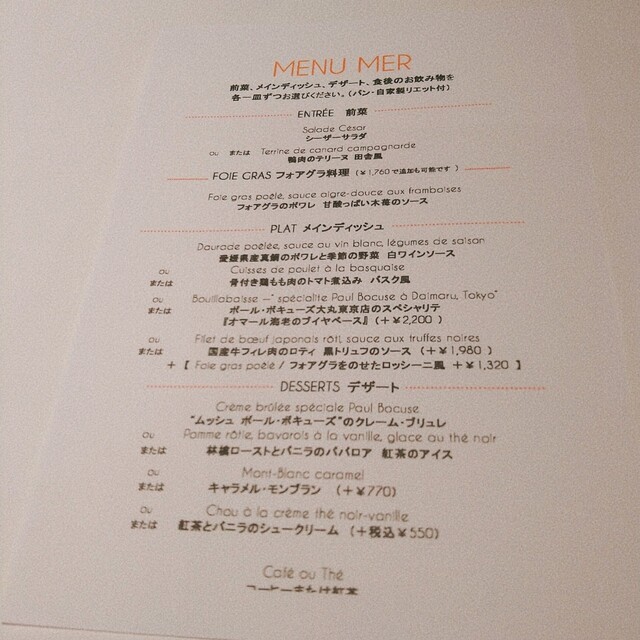 MENU MER
前菜、メインディッシュ、デザート、食後のお飲み物を
各一皿ずつお選びください。(パン・自家製リエット付)
ENTRÉE 前菜
Salade César
シーザーサラダ
ou または Terrine de canard campagnarde
鴨肉のテリーヌ 田舎風
FOIE GRAS フォアグラ料理 (¥1,760で追加も可能です)
Foie gras poêlé, sauce aigre-douce aux framboises
フォアグラのポワレ 甘酸っぱい木苺のソース
PLAT メインディッシュ
Daurade poêlée, sauce au vin blanc, légumes de saison
愛媛県産真鯛のポワレと季節の野菜 白ワインソース
ou Cuisses de poulet à la basquaise
または 骨付き鶏もも肉のトマト煮込み バスク風
ou Bouillabaisse —" spécialité Paul Bocuse à Daimaru, Tokyo"
または ポール・ボキューズ大丸東京店のスペシャリテ
『オマール海老のブイヤベース』(+¥2,200 )
ou Filet de bœuf japonais rôti, sauce aux truffes noires
または 国産牛フィレ肉のロティ 黒トリュフのソース (+¥1,980 )
+ 【 Foie gras poêlé / フォアグラをのせたロッシーニ風 +¥1,320 】
DESSERTS デザート
Crème brûlée spéciale Paul Bocuse
"ムッシュ ポール・ボキューズ"のクレーム・ブリュレ
ou Pomme rôtie, bavarois à la vanille, glace au thé noir
または 林檎ローストとバニラのババロア 紅茶のアイス
ou Mont-Blanc caramel
または キャラメル・モンブラン (+¥770)
ou Chou à la crème thé noir-vanille
または 紅茶とバニラのシュークリーム (+税込¥550)
Café ou Thé
コーヒーまたは紅茶